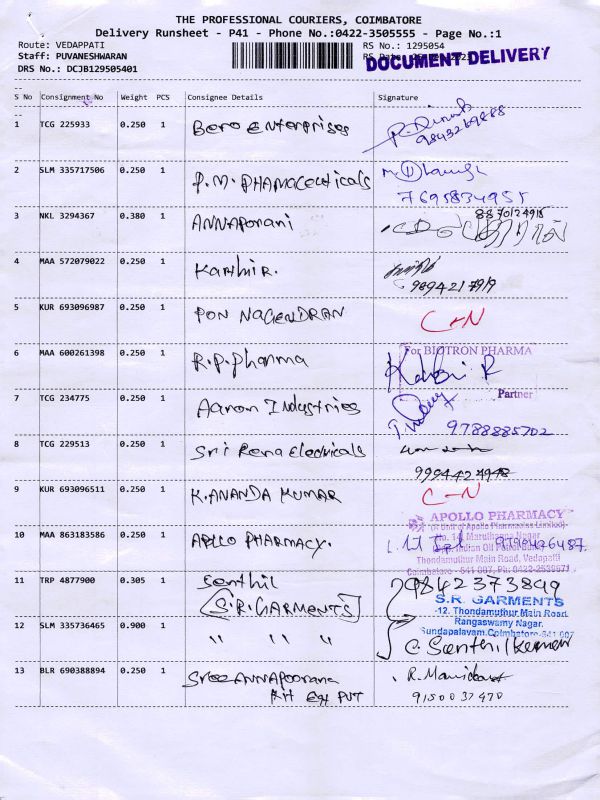 THE PROFESSIONAL COURIERS, COIMBATORE
Delivery Runsheet - P41 - Phone No.:0422-3505555 - Page No.:1
Route: VEDAPPATI RS No.: 1295054
Staff: PUVANESHWARAN RS
DOCUMENT DELIVERY
DRS No.: DCJB129505401
S No Consignment No Weight PCS Consignee Details Signature
1 TCG 225933 0.250 1 Bero Enterprises
9843269888
2 SLM 335717506 0.250 1 P.M. PHAMACEUTICALS
7695834955
3 NKL 3294367 0.380 1 ANNAPORANI 8870124915
4 MAA 572079022 0.250 1 Karthi R.
9894217919
5 KUR 693096987 0.250 1 PON NAGENDRAN C-N
For BIOTRON PHARMA
6 MAA 600261398 0.250 1 R.P. Pharma
Partner
7 TCG 234775 0.250 1 Aaron Industries
9788885702
8 TCG 229513 0.250 1 Sri Rena Electricals
9994424948
9 KUR 693096511 0.250 1 K. ANANDA KUMAR C-N
APOLLO PHARMACY
(A Unit of Apollo Pharmacies Limited)
No. 1/4 Maruthappa Nagar
10 MAA 863183586 0.250 1 APLLO PHARMACY.
Indian Oil Petrol
Thondamuthur Main Road, Vedapatti
Coimbatore - 641 007.
11 TRP 4877900 0.305 1 Senthil 9842373899
(S.R. GARMENTS)
S.R. GARMENTS
-12, Thondamuthur Main Road.
Rangaswamy Nagar.
Sundapalayam, Coimbatore-641 007
12 SLM 335736465 0.900 1 " " " C. Santhilkumar
13 BLR 690388894 0.250 1 Sree ANNAPOORANA R.
PVT 9150037470